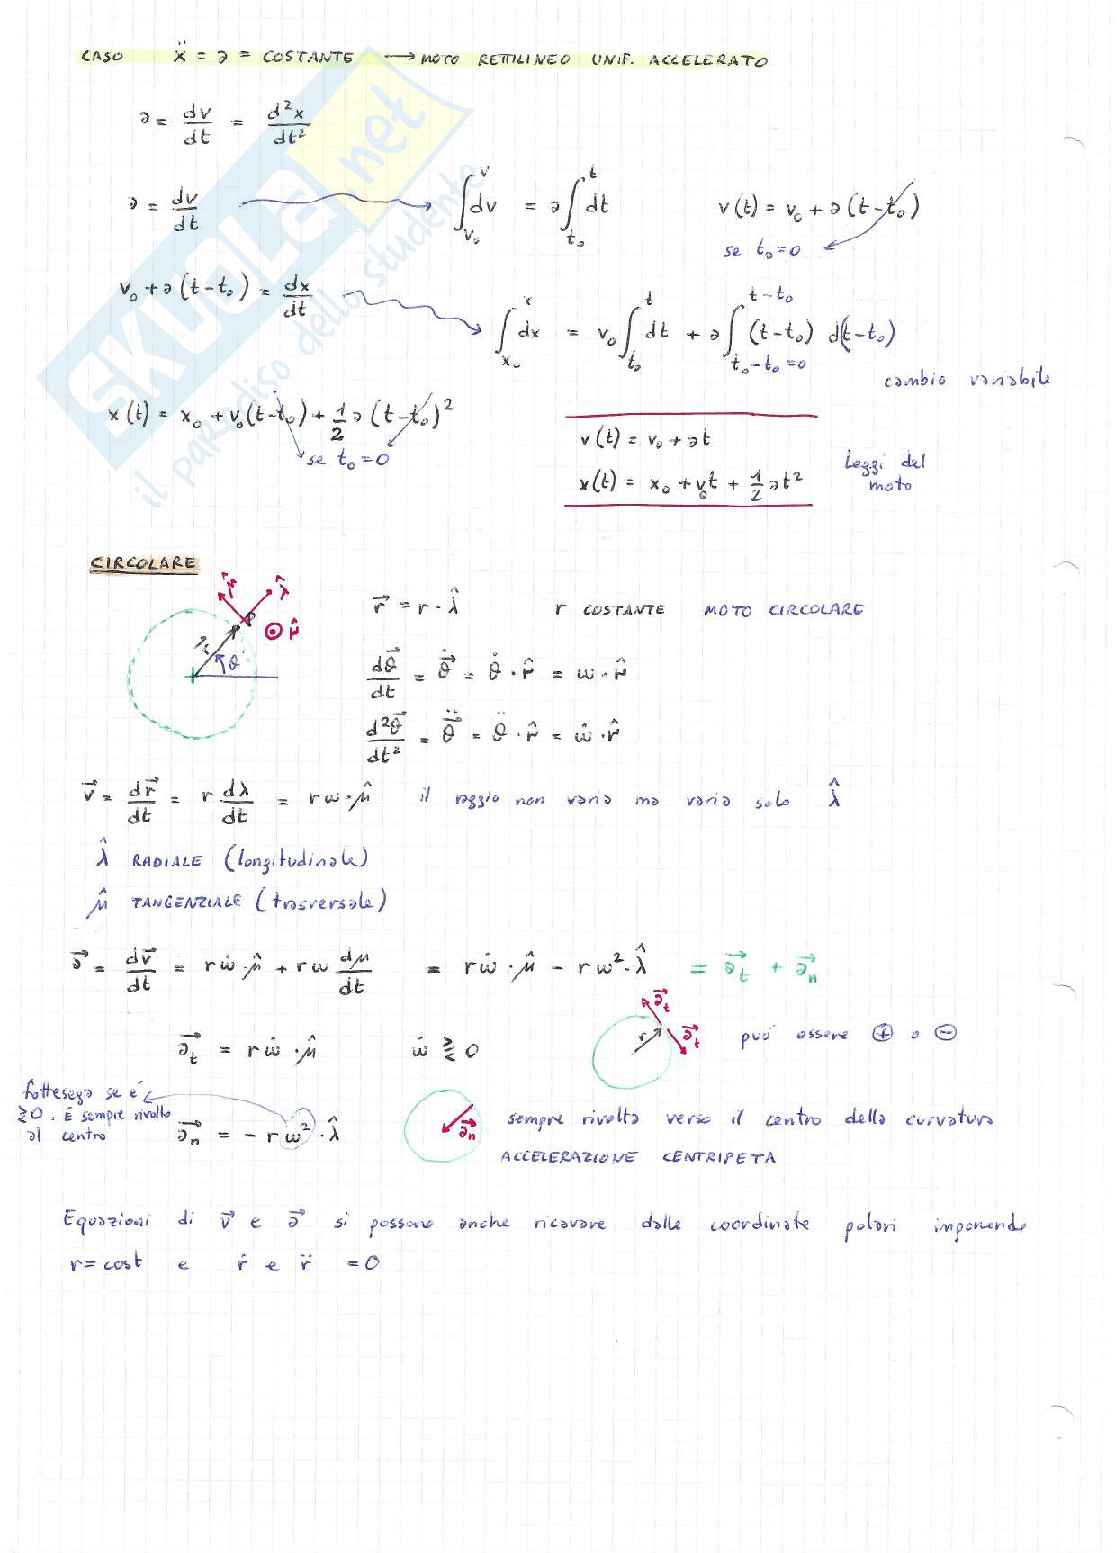 CASO ẍ = a = COSTANTE → MOTO RETTILINEO UNIF. ACCELERATO
a = dv/dt = d²x/dt²
a = dv/dt ∫_{v₀}^{v} dv = a ∫_{t₀}^{t} dt v(t) = v₀ + a(t-t₀)
se t₀=0
v₀ + a(t-t₀) = dx/dt ∫_{x₀}^{x} dx = v₀ ∫_{t₀}^{t} dt + a ∫_{t₀-t₀=0}^{t-t₀} (t-t₀) d(t-t₀)
cambio variabile
x(t) = x₀ + v₀(t-t₀) + 1/2 a (t-t₀)²
se t₀=0
v(t) = v₀ + at
x(t) = x₀ + v₀t + 1/2 at²
Leggi del
moto
SKUOLA.net
il paradiso dello studente
CIRCOLARE
λ̂
μ̂
P
r⃗
θ
r⃗ = r · λ̂ r COSTANTE MOTO CIRCOLARE
dθ⃗/dt = θ⃗̇ = θ̇ · μ̂ = ω · μ̂
d²θ⃗/dt² = θ⃗̈ = θ̈ · μ̂ = ω̇ · μ̂
v⃗ = dr⃗/dt = r dλ/dt = rω · μ̂ il raggio non varia ma varia solo λ̂
λ̂ RADIALE (longitudinale)
μ̂ TANGENZIALE (trasversale)
a⃗ = dv⃗/dt = rω̇ · μ̂ + rω dμ/dt = rω̇ · μ̂ - rω² · λ̂ = a⃗t + a⃗n
a⃗t
r
a⃗t
a⃗t = rω̇ · μ̂ ω̇ ≷ 0 può essere ⊕ o ⊖
fottesega se è
≷0. È sempre rivolto
al centro
a⃗n = - rω² · λ̂
a⃗n
sempre rivolta verso il centro della curvatura
ACCELERAZIONE CENTRIPETA
Equazioni di v⃗ e a⃗ si possono anche ricavare dalle coordinate polari imponendo
r=cost e ṙ e r̈ =0